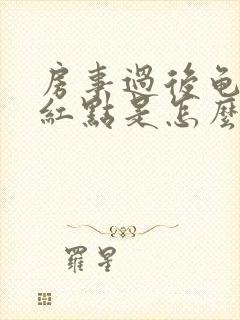 房事過後龟
紅點是怎麼
羅星